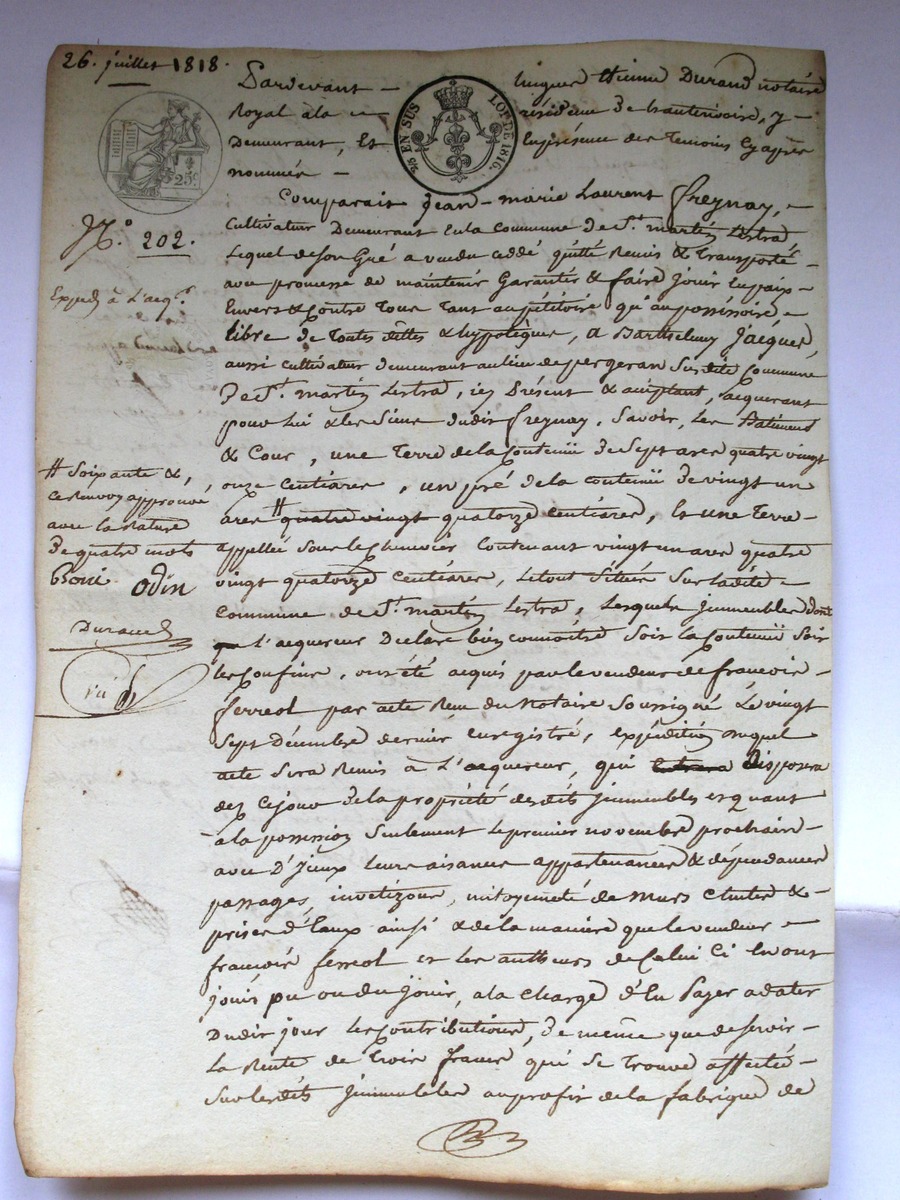 26. juillet 1818.
Pardevant Etienne Durand notaire
Royal à la résidence de hauterivoire, y
Demeurant, Et En présence des Temoins Cy après
nommés
25c.
3/8 EN SUS LOI DE 1816.
Comparait Jean-marie Laurent freynay,
Cultivateur Demeurant En la Commune de St. martin Lestra
Lequel de son Gré a vendu cèddé quitté Remis & Transporté
avec promesse de maintenir Garantir & faire jouir En paix
Envers & Contre Tous Tant au pétitoire qu'au possessoire
libre de toutes dêttes & hypotèques, a Barthelemy jacques,
aussi Cultivateur demeurant au lieu de pergeran Susdite Commune
De St. martin Lestra, icy Présent & acceptant, acquerant
pour Lui & les Siens dudit freynay, Savoir, Les Batiments
& Cour, une Terre de la Contenüe de Sept ares quatre vingt
onze Centiares, un pré de la contenüe de vingt un
ares # quatre vingt quatorze centiares, Et une Terre
appellée Sous le Contenant vingt un ares quatre
vingt quatorze Centiares, Le tout Situés Sur la dite
commune de St. martin Lestra, Lesquels jmmeubles dont
L'acquereur Déclare bien connoitre Soit la Contenüe Soit
les Confins, ont été acquis par le vendeur de francois
ferreol par acte Reçu du Notaire Soussigné Le vingt
Sept Décembre dernier Enregistré, Expédition duquel
acte Sera Remis à L'acquereur, qui Disposera
dez Ce jour de la propriété desdits jmmeubles et quant
à la possession Seulement le premier novembre prochain
avec D'jceux leurs aisances appartenances & dépendances
passages, mitoyeneté de murs &
prises d'Eaux ainsi & de la maniere que le vendeur
francois ferreol et les autheurs de Celui Ci En ont
jouis pu ou du jouir, a la charge d'En Payer a dater
Dudit jour les Contributions, de même que de Servir
La Rente de trois francs qui Se trouve affectée
Sur lesdits jmmeubles au profit de la fabrique de
No. 202.
Expédé à L'acqr.
# Soixante &
Ce Renvoy approuvé
avec la Rature
De quatre mots
odin
Durand